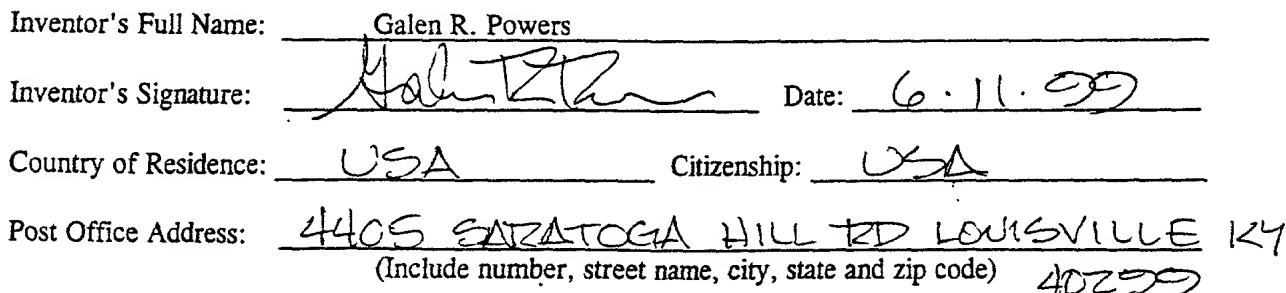 Inventor's Full Name: Galen R. Powers
Inventor's Signature: Date: 6.11.99
Country of Residence: USA Citizenship: USA
Post Office Address: 4405 SARATOGA HILL RD LOUISVILLE KY
(Include number, street name, city, state and zip code) 40299